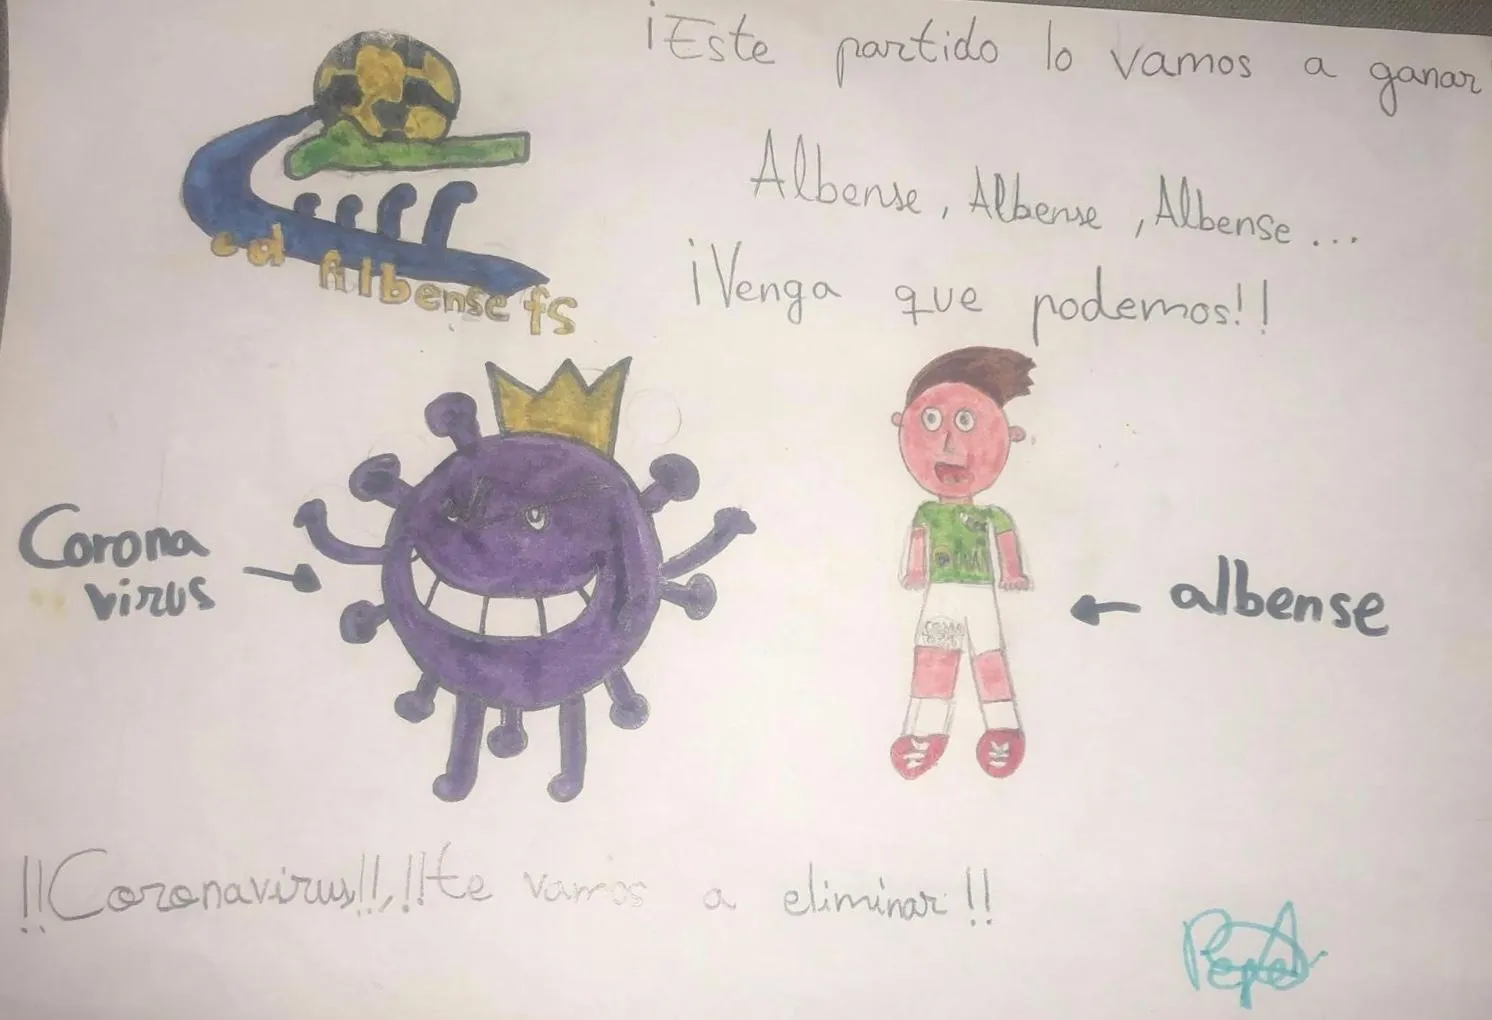 ¡Este partido lo vamos a ganar
Albense, Albense, Albense...
¡Venga que podemos!!
cd Albense fs
Corona
virus
albense
¡¡Coronavirus!!, ¡¡te vamos a eliminar!!